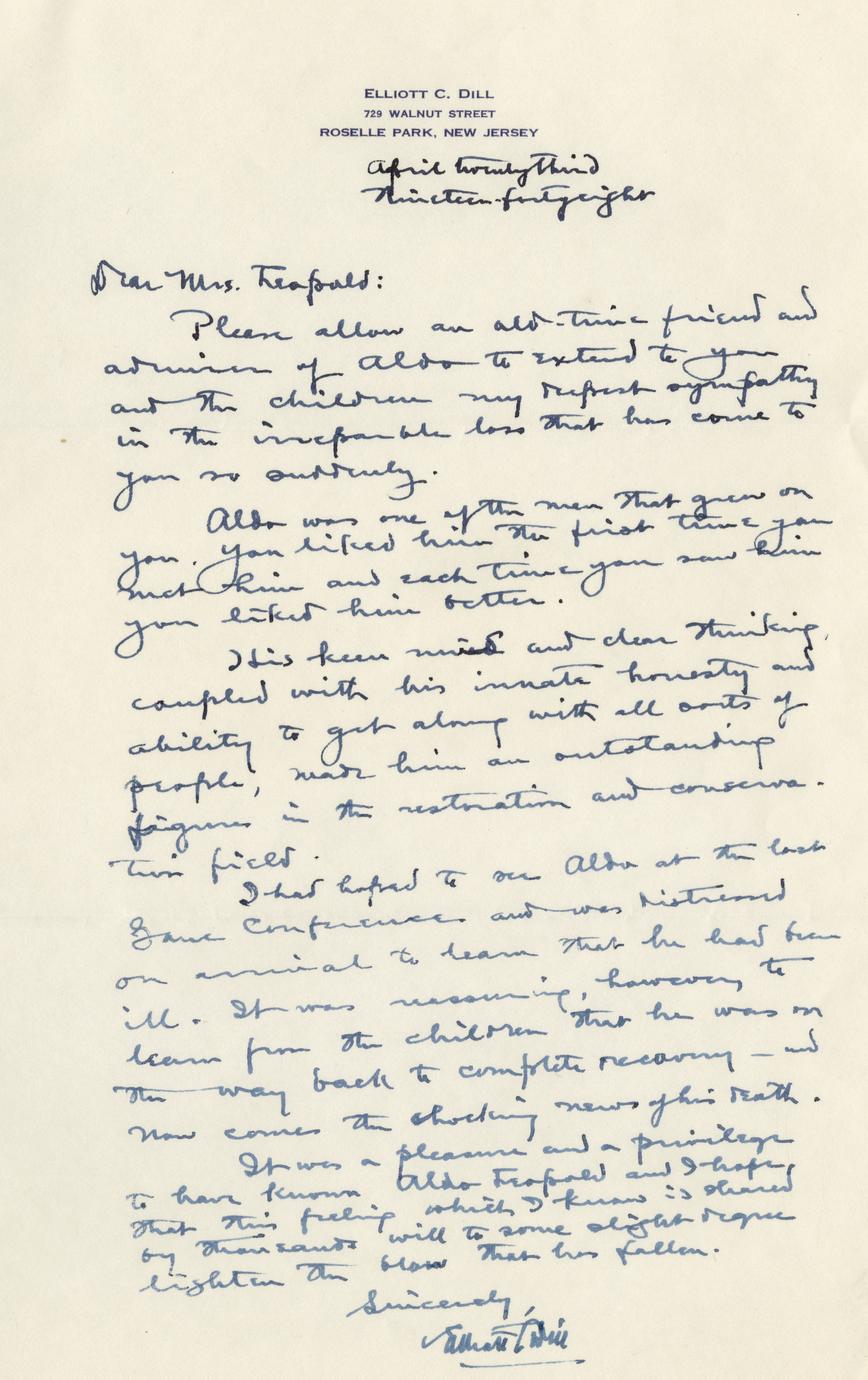 ELLIOTT C. DILL
729 WALNUT STREET
ROSELLE PARK, NEW JERSEY
April twentythird
Nineteen-fortyeight
Dear Mrs. Leopold:
Please allow an old-time friend and
admirer of Aldo to extend to you
and the children my deepest sympathy
in the irreparable loss that has come to
you so suddenly.
Aldo was one of the men that grew on
you. You liked him the first time you
met him and each time you saw him
you liked him better.
His keen mind and clear thinking,
coupled with his innate honesty and
ability to get along with all sorts of
people, made him an outstanding
figure in the restoration and conserva-
tion field.
I had hoped to see Aldo at the last
Game Conference and was distressed
on arrival to learn that he had been
ill. It was reassuring, however, to
learn from the children that he was on
the way back to complete recovery — and
now comes the shocking news of his death.
It was a pleasure and a privilege
to have known Aldo Leopold and I hope,
that this feeling which I know is shared
by thousands will to some slight degree
lighten the blow that has fallen.
Sincerely,
Elliott C Dill